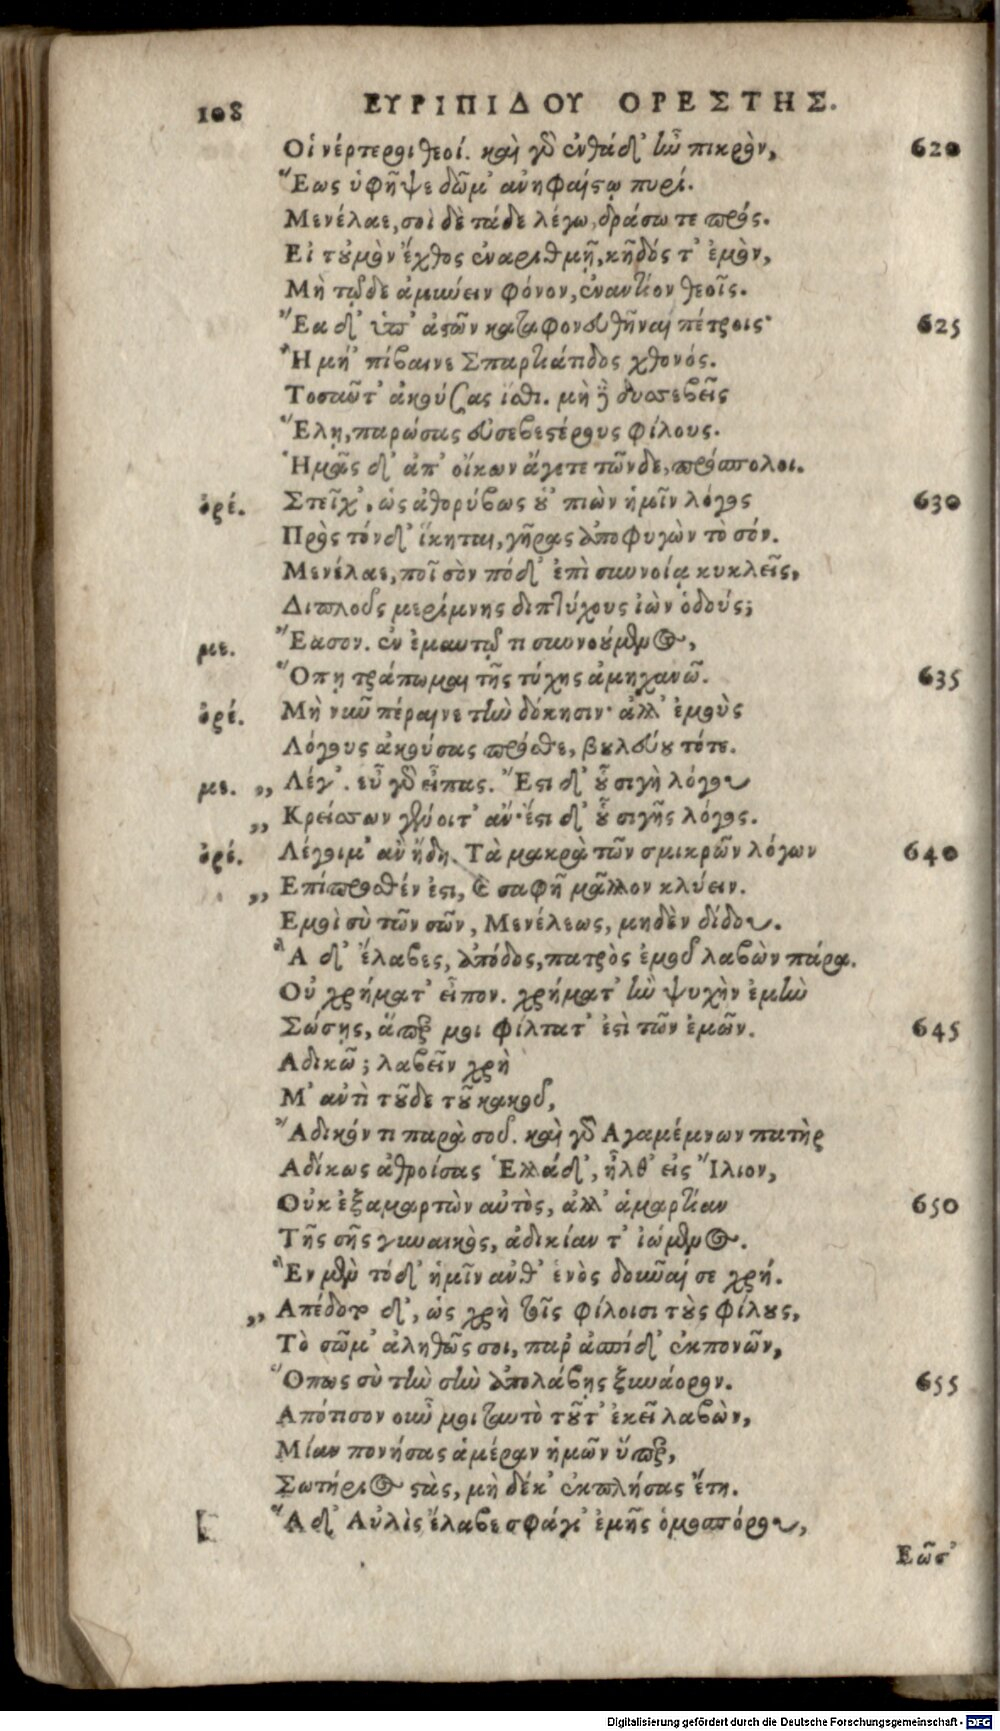 108 ΕΥΡΙΠΙΔΟΥ ΟΡΕΣΤΗΣ.
Οἱ νέρτεροι θεοί. καὶ γὰρ ἐνθάδ' ἦν πικρὸν, 620
Ἕως ὑφῆψε δῶμ' ἀνηφαίστῳ πυρί.
Μενέλαε, σοὶ δὲ τάδε λέγω, δράσω τε πρός.
Εἰ τοὐμὸν ἔχθος ἐναριθμῇ, κῆδός τ' ἐμὸν,
Μὴ τῷδε ἀμύνειν φόνον, ἐναντίον θεοῖς.
Ἔα δ' ὑπ' ἀστῶν καταφονευθῆναι πέτροις· 625
Ἢ μή' πίβαινε Σπαρτιάτιδος χθονός.
Τοσαῦτ' ἀκούσας ἴσθι. μὴ δὲ δυσσεβεῖς
Ἕλῃ, παρώσας εὐσεβεστέρους φίλους.
Ἡμᾶς δ' ἀπ' οἴκων ἄγετε τῶνδε, πρόσπολοι.
ὀρέ. Στεῖχ', ὡς ἀθορύβως οὑ' πιὼν ἡμῖν λόγος 630
Πρὸς τόνδ' ἵκηται, γῆρας ἀποφυγὼν τὸ σόν.
Μενέλαε, ποῖ σὸν πόδ' ἐπὶ συννοίᾳ κυκλεῖς,
Διπλοῦς μερίμνης διπτύχους ἰὼν ὁδούς;
με. Ἔασον. ἐν ἐμαυτῷ τι συννούμενος,
Ὅπῃ τράπωμαι τῆς τύχης ἀμηχανῶ. 635
ὀρέ. Μὴ νῦν πέραινε τὴν δόκησιν· ἀλλ' ἐμοὺς
Λόγους ἀκούσας πρόσθε, βουλεύου τότε.
με. „ Λέγ'. εὖ γὰρ εἶπας. Ἔστι δ' οὗ σιγὴ λόγου
„ Κρείσσων γένοιτ' ἄν· ἔστι δ' οὗ σιγῆς λόγος.
ὀρέ. Λέγοιμ' ἂν ἤδη. Τὰ μακρὰ τῶν σμικρῶν λόγων 640
„ Ἐπίπροσθέν ἐστι, καὶ σαφῆ μᾶλλον κλύειν.
Εμοὶ σὺ τῶν σῶν, Μενέλεως, μηδὲν δίδου.
Ἃ δ' ἔλαβες, ἀπόδος, πατρὸς ἐμοῦ λαβὼν πάρα.
Οὐ χρήματ' εἶπον. χρήματ' ἢν ψυχὴν ἐμὴν
Σώσῃς, ἅπερ μοι φίλτατ' ἐστὶ τῶν ἐμῶν. 645
Αδικῶ; λαβεῖν χρὴ
Μ' ἀντὶ τοῦδε τοῦ κακοῦ,
Ἄδικόν τι παρὰ σοῦ. καὶ γὰρ Αγαμέμνων πατὴρ
Αδίκως ἀθροίσας Ἑλλάδ', ἦλθ' εἰς Ἴλιον,
Οὐκ ἐξαμαρτὼν αὐτὸς, ἀλλ' ἁμαρτίαν 650
Τῆς σῆς γυναικὸς, ἀδικίαν τ' ἰώμενος.
Ἓν μὲν τόδ' ἡμῖν ἀνθ' ἑνὸς δοῦναί σε χρή.
„ Απέδοτο δ', ὡς χρὴ τοῖς φίλοισι τοὺς φίλους,
Τὸ σῶμ' ἀληθῶς σοι, παρ' ἀσπίδ' ἐκπονῶν,
Ὅπως σὺ τὴν σὴν ἀπολάβῃς ξυνάορον. 655
Απότισον οὖν μοι ταυτὸ τοῦτ' ἐκεῖ λαβὼν,
Μίαν πονήσας ἁμέραν ἡμῶν ὕπερ,
Σωτήριος στὰς, μὴ δέκ' ἐκπλήσας ἔτη.
Ἃ δ' Αὐλὶς ἔλαβε σφάγι' ἐμῆς ὁμοσπόρου,
Εῶσ'
Digitalisierung gefördert durch die Deutsche Forschungsgemeinschaft - DFG